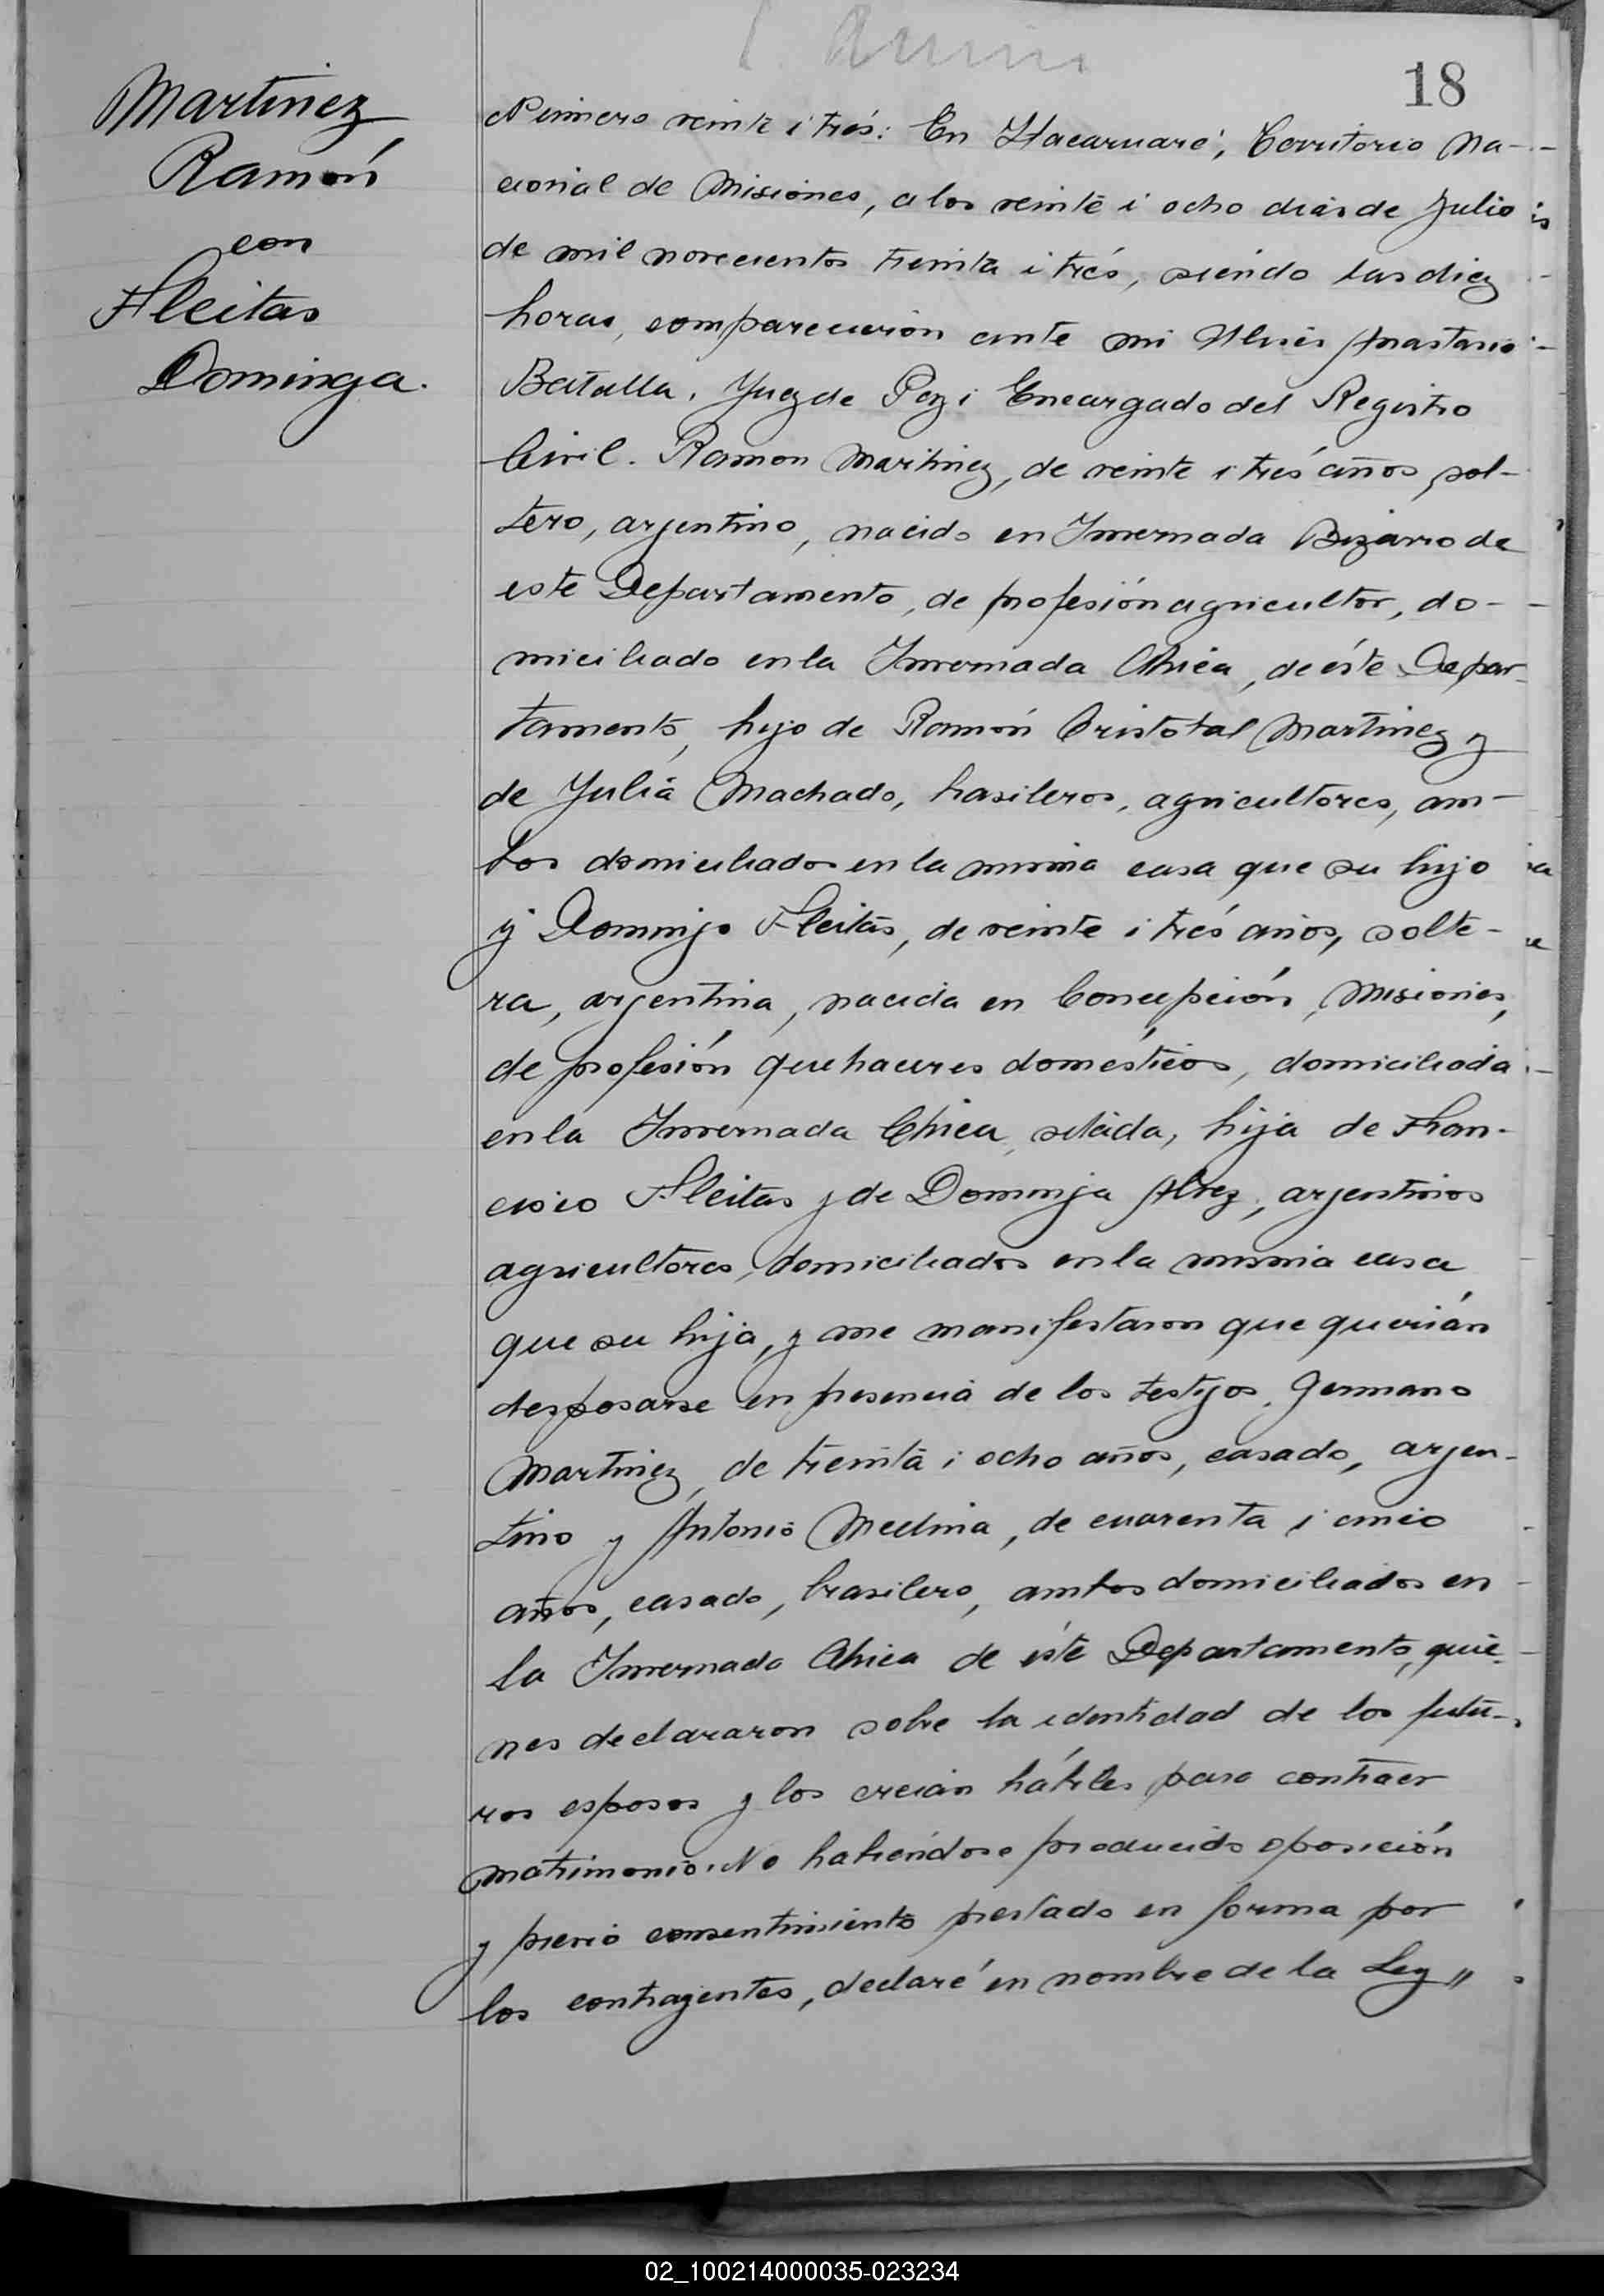 18
Martinez
Ramón
con
Fleitas
Dominga.
Número veinte i trés: En Itacaruaré, Territorio Na-
cional de Misiones, a los veinte i ocho dias de Julio
de mil novecientos treinta i trés, siendo las diez
horas, comparecieron ante mi Ulises Anastasio
Batalla, Juez de Paz i Encargado del Registro
Civil. Ramon Martinez, de veinte i trés años, sol-
tero, argentino, nacido en Invernada Bizarro de
este Departamento, de profesión agricultor, do-
miciliado en la Invernada Chica, de éste Depar-
tamento, hijo de Ramón Cristobal Martinez y
de Julia Machado, brasileros, agricultores, am-
bos domiciliados en la misma casa que su hijo
y Dominga Fleitas, de veinte i trés años, solte-
ra, argentina, nacida en Concepción, Misiones,
de profesión quehaceres domésticos, domiciliada
en la Invernada Chica, sitada, hija de Fran-
cisco Fleitas y de Dominga Alvez, argentinos
agricultores, domiciliados en la misma casa
que su hija, y me manifestaron que querián
desposarse en presencia de los testigos, Germano
Martinez, de treinta i ocho años, casado, argen-
tino y Antonio Medina, de cuarenta i cinco
años, casado, brasilero, ambos domiciliados en
la Invernada Chica de éste Departamento, quie-
nes declararon sobre la identidad de los futu-
ros esposos y los creián hábiles para contraer
matrimonio. No habiéndose producido oposición
y previo consentimiento prestado en forma por
los contrayentes, declaré en nombre de la Ley "
02_100214000035-023234